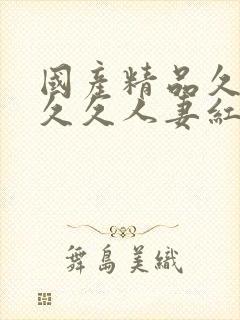 國産精品久
久久人妻紅
舞島美織